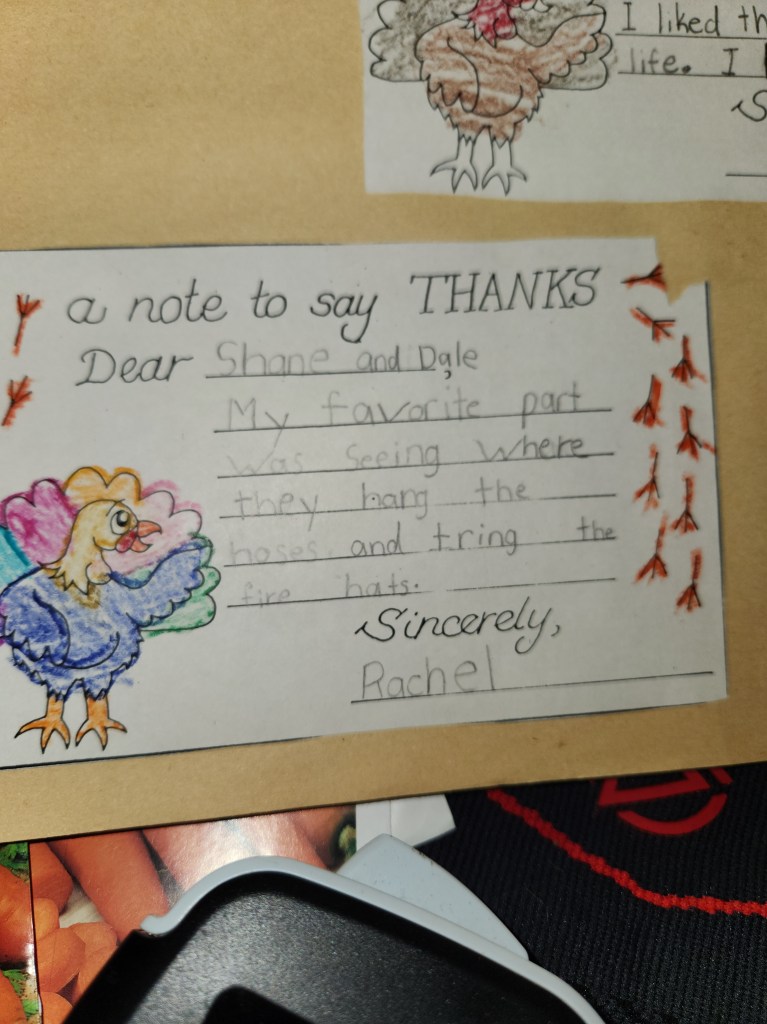 I liked th
life. I
S
a note to say THANKS
Dear Shane and Dale,
My favorite part
was seeing where
they hang the
hoses and tring the
fire hats.
Sincerely,
Rachel